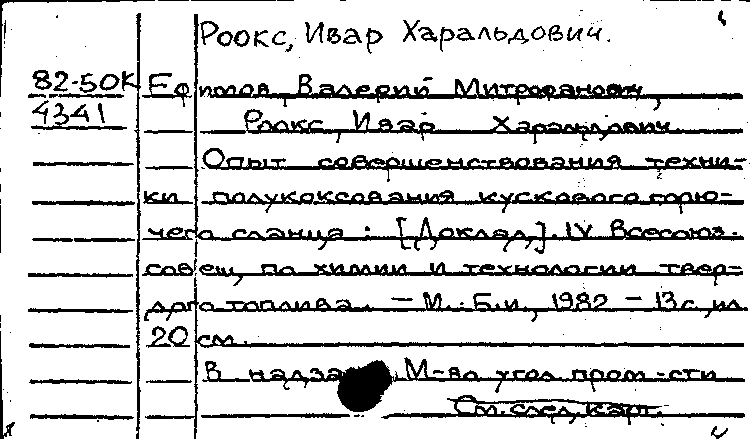 Роокс, Ивар Харальдович.
82-50К Ефимов, Валерий Митрофанович,
4341 Роокс, Ивар Харальдович.
Опыт совершенствования техни-
ки полукоксования кускового горю-
чего сланца : [Доклад]. IV Всесоюз.
совещ. по химии и технологии твер-
дого топлива. — М. : Б.и., 1982 — 13 с., ил.
20 см.
В надзаг. М-во угол. пром-сти
См. след. карт.